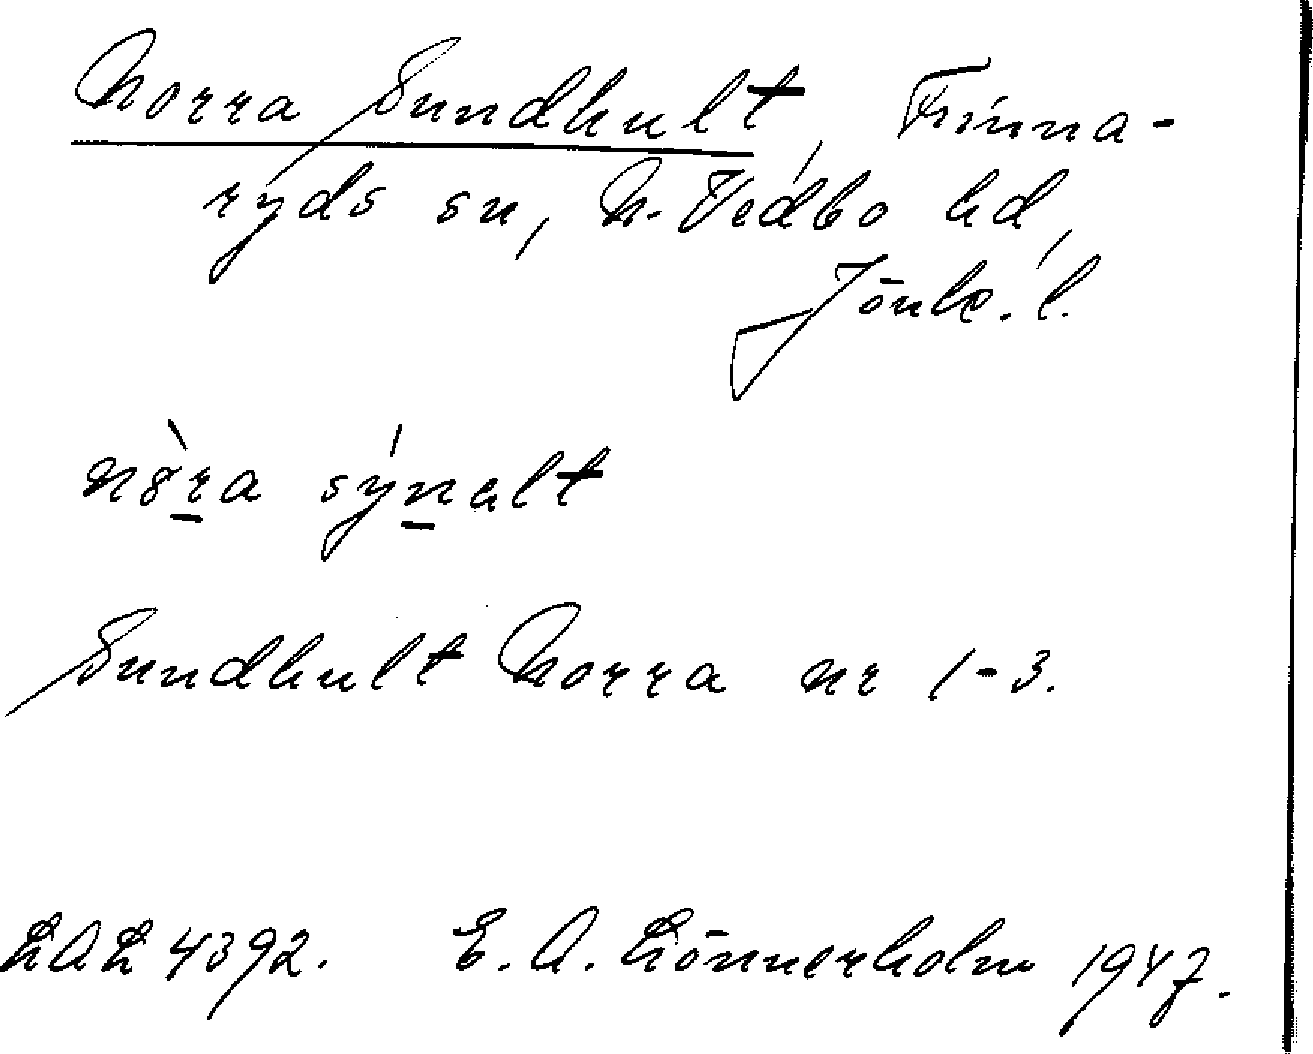 Norra Sundhult, Finna-
ryds sn, N. Vedbo hd,
Jönk. l.
nö̀ra sýnalt
Sundhult Norra nr 1-3.
LAL 4392. E. A. Lönnerholm 1947.